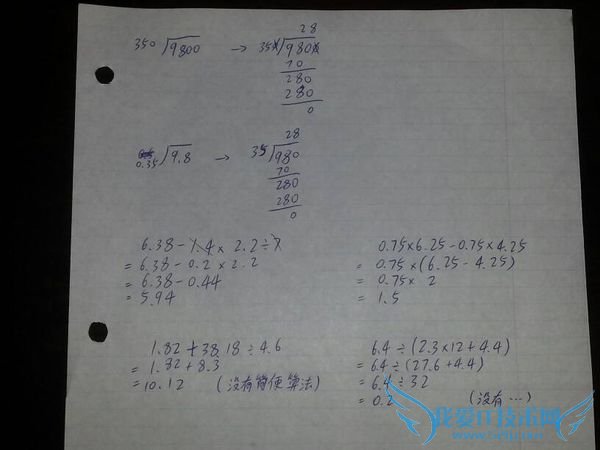 28
350 ⟌9800 → 350 ⟌9800
70
280
280
0
28
0.35 ⟌9.8 → 35 ⟌980
70
280
280
0
6.38 - 1.4 × 2.2 ÷ 7
= 6.38 - 0.2 × 2.2
= 6.38 - 0.44
= 5.94
0.75×6.25-0.75×4.25
= 0.75×(6.25-4.25)
= 0.75× 2
= 1.5
1.82 + 38.18 ÷ 4.6
= 1.82 + 8.3
= 10.12 (没有简便算法)
6.4 ÷ (2.3×12+4.4)
= 6.4 ÷ (27.6+4.4)
= 6.4 ÷ 32
= 0.2 (没有…)
我爱IT技术网